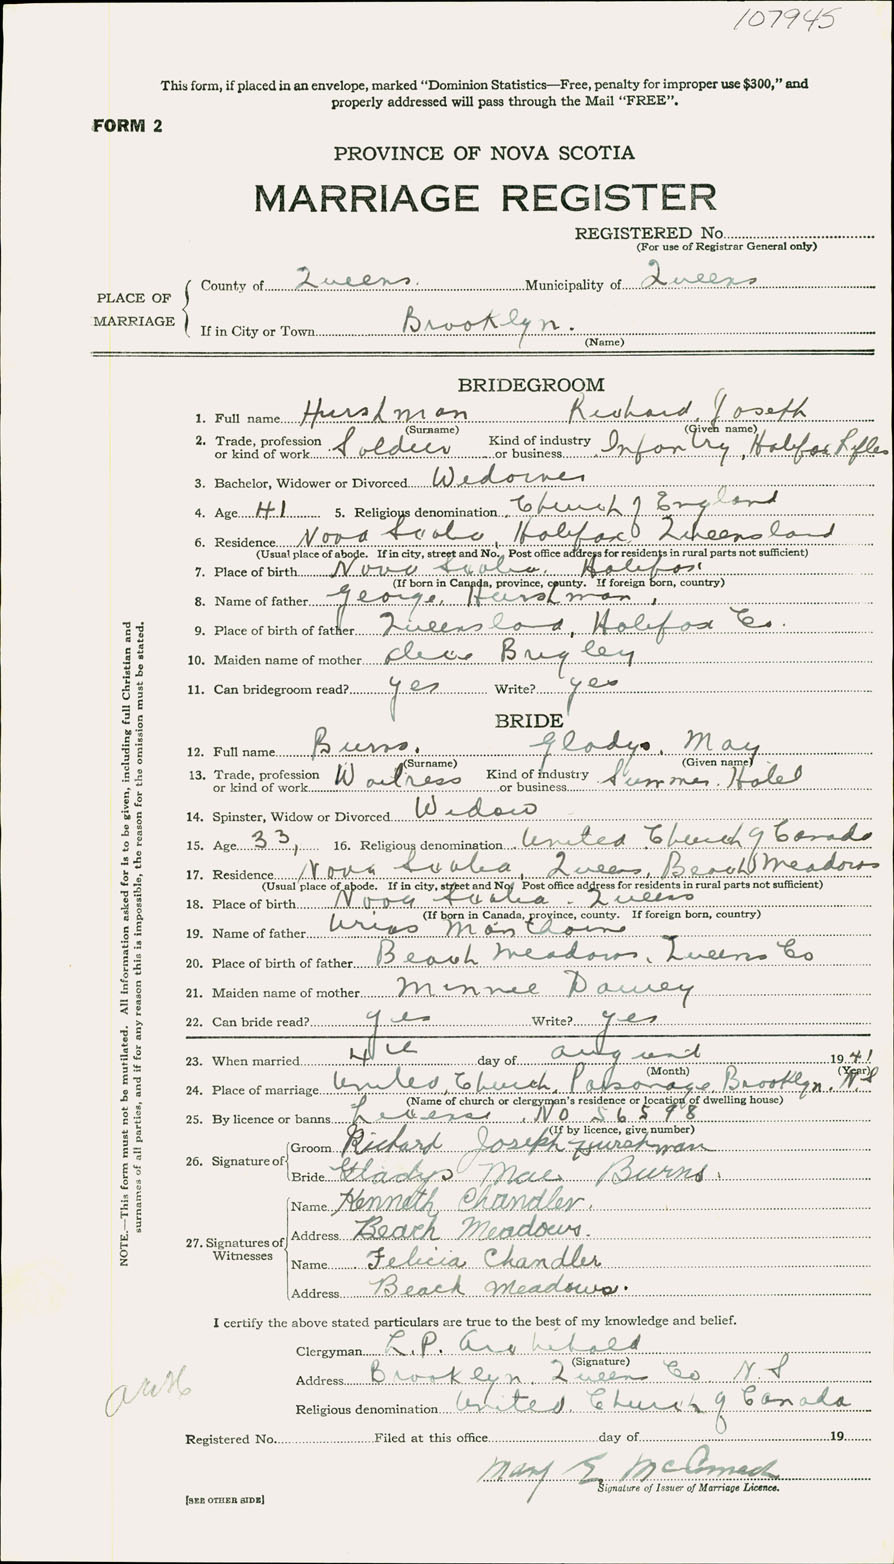 107945
This form, if placed in an envelope, marked “Dominion Statistics—Free, penalty for improper use $300,” and
properly addressed will pass through the Mail “FREE”.
FORM 2
PROVINCE OF NOVA SCOTIA
MARRIAGE REGISTER
REGISTERED No.
(For use of Registrar General only)
PLACE OF MARRIAGE
County of Queens. Municipality of Queens
If in City or Town Brooklyn.
(Name)
BRIDEGROOM
1. Full name Hirshman Richard Joseph
(Surname) (Given name)
2. Trade, profession or kind of work Soldier Kind of industry or business Infantry, Halifax Rifles
3. Bachelor, Widower or Divorced Widower
4. Age 41 5. Religious denomination Church of England
6. Residence Nova Scotia, Halifax Queensland
(Usual place of abode. If in city, street and No. Post office address for residents in rural parts not sufficient)
7. Place of birth Nova Scotia. Halifax
(If born in Canada, province, county. If foreign born, country)
8. Name of father George Hirshman
9. Place of birth of father Queensland, Halifax Co.
10. Maiden name of mother Brigley
11. Can bridegroom read? yes Write? yes
BRIDE
12. Full name Burns. Gladys. May
(Surname) (Given name)
13. Trade, profession or kind of work Waitress Kind of industry or business Summer Hotel
14. Spinster, Widow or Divorced Widow
15. Age 33, 16. Religious denomination United Church of Canada
17. Residence Nova Scotia, Queens, Beach Meadows
(Usual place of abode. If in city, street and No. Post office address for residents in rural parts not sufficient)
18. Place of birth Nova Scotia. Queens
(If born in Canada, province, county. If foreign born, country)
19. Name of father Urias
20. Place of birth of father Beach Meadows, Queens Co
21. Maiden name of mother Minnie Dauey
22. Can bride read? yes Write? yes
23. When married 4th day of 1941
(Month) (Year)
24. Place of marriage United Church Parsonage Brooklyn. N.S
(Name of church or clergyman's residence or location of dwelling house)
25. By licence or banns License No 56598
(If by licence, give number)
26. Signature of
Groom Richard Joseph Hirshman
Bride Gladys Mae Burns.
27. Signatures of Witnesses
Name Kenneth Chandler.
Address Beach Meadows.
Name Felicia Chandler
Address Beach Meadows.
I certify the above stated particulars are true to the best of my knowledge and belief.
Clergyman L.P. Archibald
(Signature)
Address Brooklyn, Queens Co N.S
Religious denomination United Church of Canada
Registered No. Filed at this office day of 19
Mary E.
Signature of Issuer of Marriage Licence.
[SEE OTHER SIDE]
NOTE.—This form must not be mutilated. All information asked for is to be given, including full Christian and
surnames of all parties, and if for any reason this is impossible, the reason for the omission must be stated.